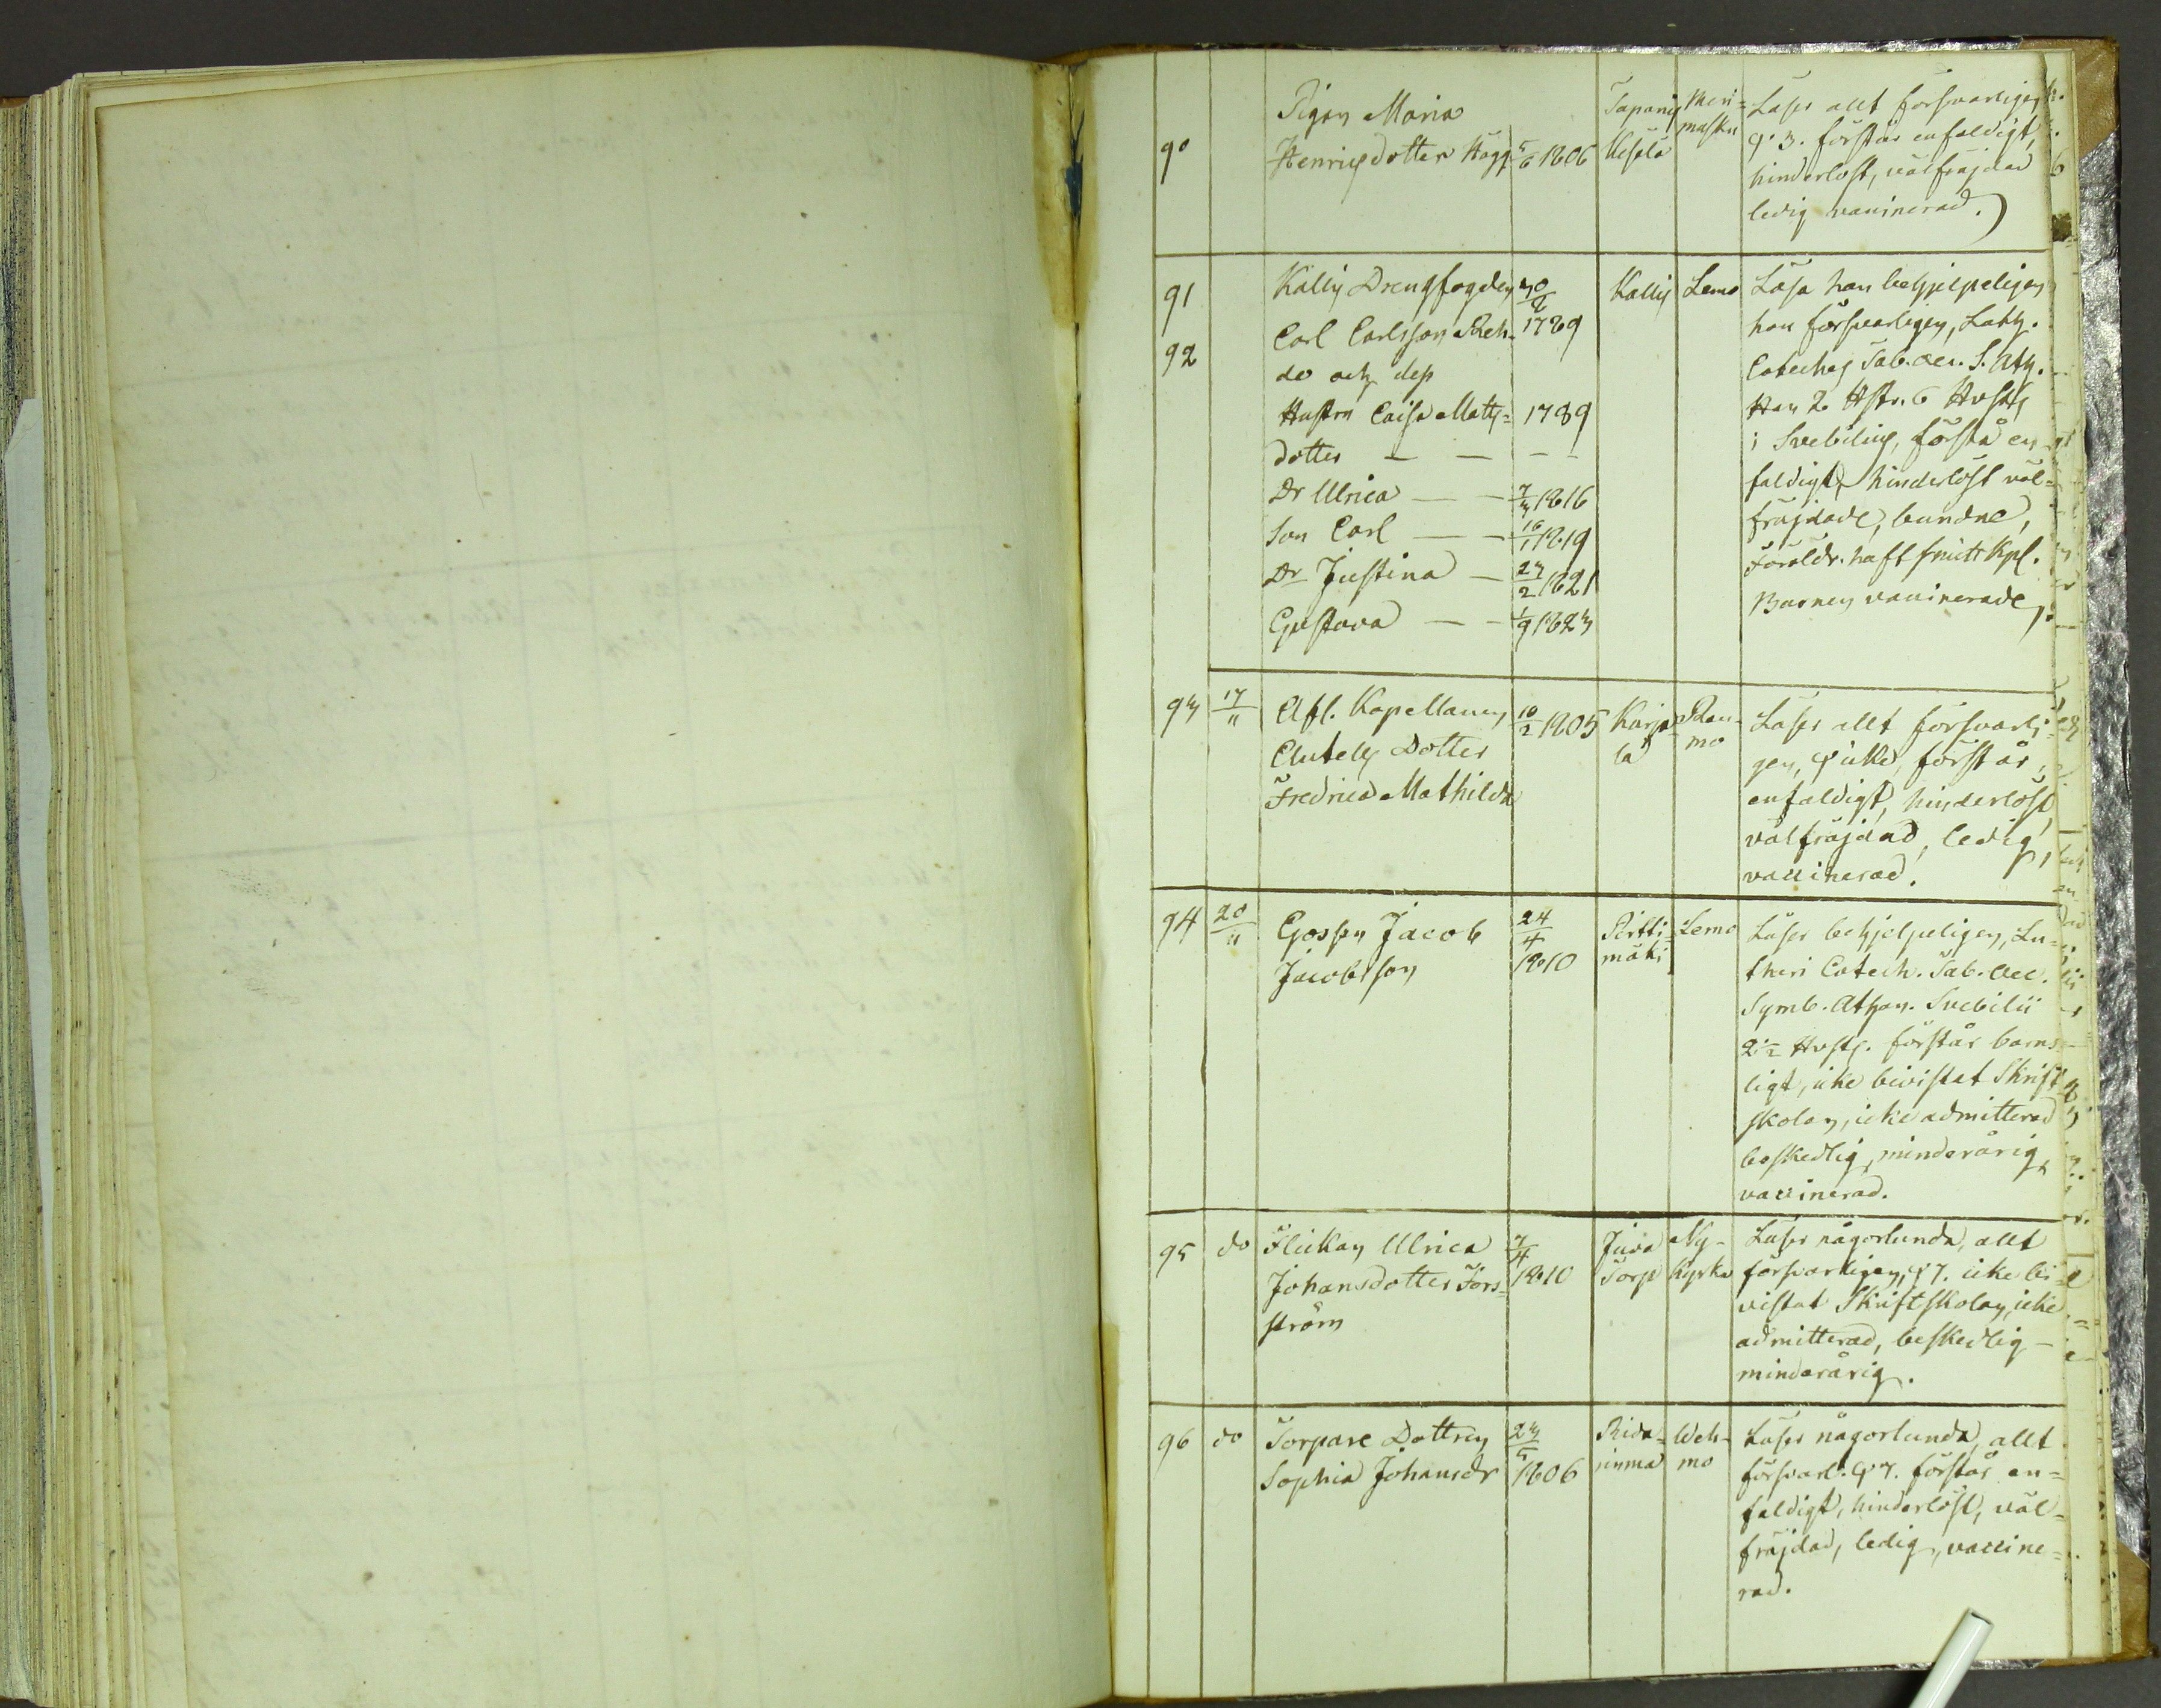 90
Pigan Maria
Henricsdotter Hägg 5/6 1806
Tapanis
Uesala
Meri=
masku
Läser allt försvarligen
q. 3. förstår enfaldigt,
hinderlöst, välfräjdad
ledig vaccinerad.
91
92
Kallis Drengfogden 30/8
Carl Carlsson Reh- 1789
de och dess
Hustru Caisa Matts= 1789
dotter — — — —
Dr Ulrica — — 7/3 1816
Son Carl — — 16/1 1819
Dr Justina — 23/2 1821
Gustava — — 1/9 1823
Kallis
Lemo
Läsa han behjelpeligen
hon försvarligen, Luth.
Cateches Tab. oec. S. Ath.
Han 2 Hstr. 6 Hvfst
i Svebilius, förstå en-
faldigt, hinderlöst väl=
fräjdade, bundne,
Föräldr. haft smittkpl.
Barnen vaccinerade.
93
17/11
Afl. Kapellanen
Clutell Dotter
Fredrica Mathilda
10/2 1805
Karja=
la
Rau-
mo
Läser allt försvarli=
gen, q icke, förstår
enfaldigt, hinderlöst,
välfräjdad, ledig,
vaccinerad.
94
20/11
Gossen Jacob
Jacobsson
24/4
1810
Pirtti=
mäki
Lemo
Läser behjelpeligen, Lu-
theri Catech. Tab. oec.
Symb. Athan. Svebilii
2½ Hvfst. förstår barns-
ligt, icke bivistat Skrift
skolan, icke admitterad
beskedlig, minderårig,
vaccinerad.
95
do
Flickan Ulrica
Johansdotter Fors=
ström
7/4
1810
Juva
Torp
Ny-
kyrka
Läser någorlunda, allt
försvarligen, q 7. icke bi-
vistat Skriftskolan, icke
admitterad, beskedlig —
minderårig.
96
do
Torpare Dottren
Sophia Johansdr
23/5
1806
Rida-
rinma
Weh-
mo
Läser någorlunda, allt
försvarl. q 7. förstår en=
faldigt, hinderlöst, väl-
fräjdad, ledig, vaccine=
rad.